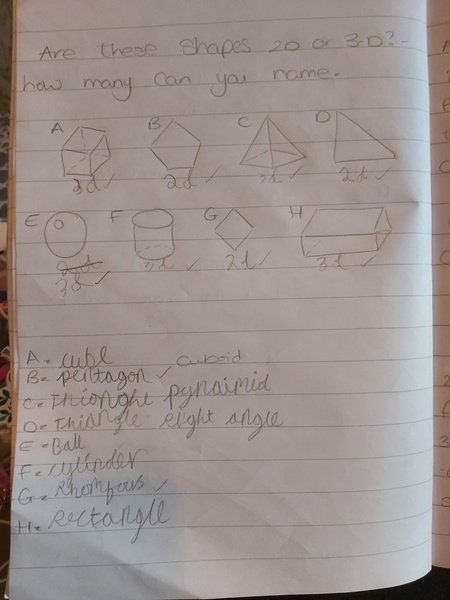 Are these Shapes 2D or 3-D?-
how many Can you name.
A B C D
3d ✓ 2d ✓ 3d ✓ 2d ✓
E F G H
3d ✓ 2d ✓ 3d ✓
3d ✓
A = cube cuboid
B = pentagon ✓
C = Thionght pynaimid
D = Thiangle eright angle
E = Ball
F = cylinder
G = Rhomfous ✓
H = rectangle